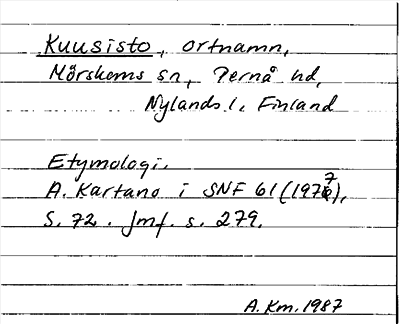 Kuusisto, ortnamn,
Mörskoms sn, Pernå hd,
Nylands l. Finland
Etymologi.
A. Kartano i SNF 61 (1977),
S. 72. Jmf. s. 279.
A.Km. 1987